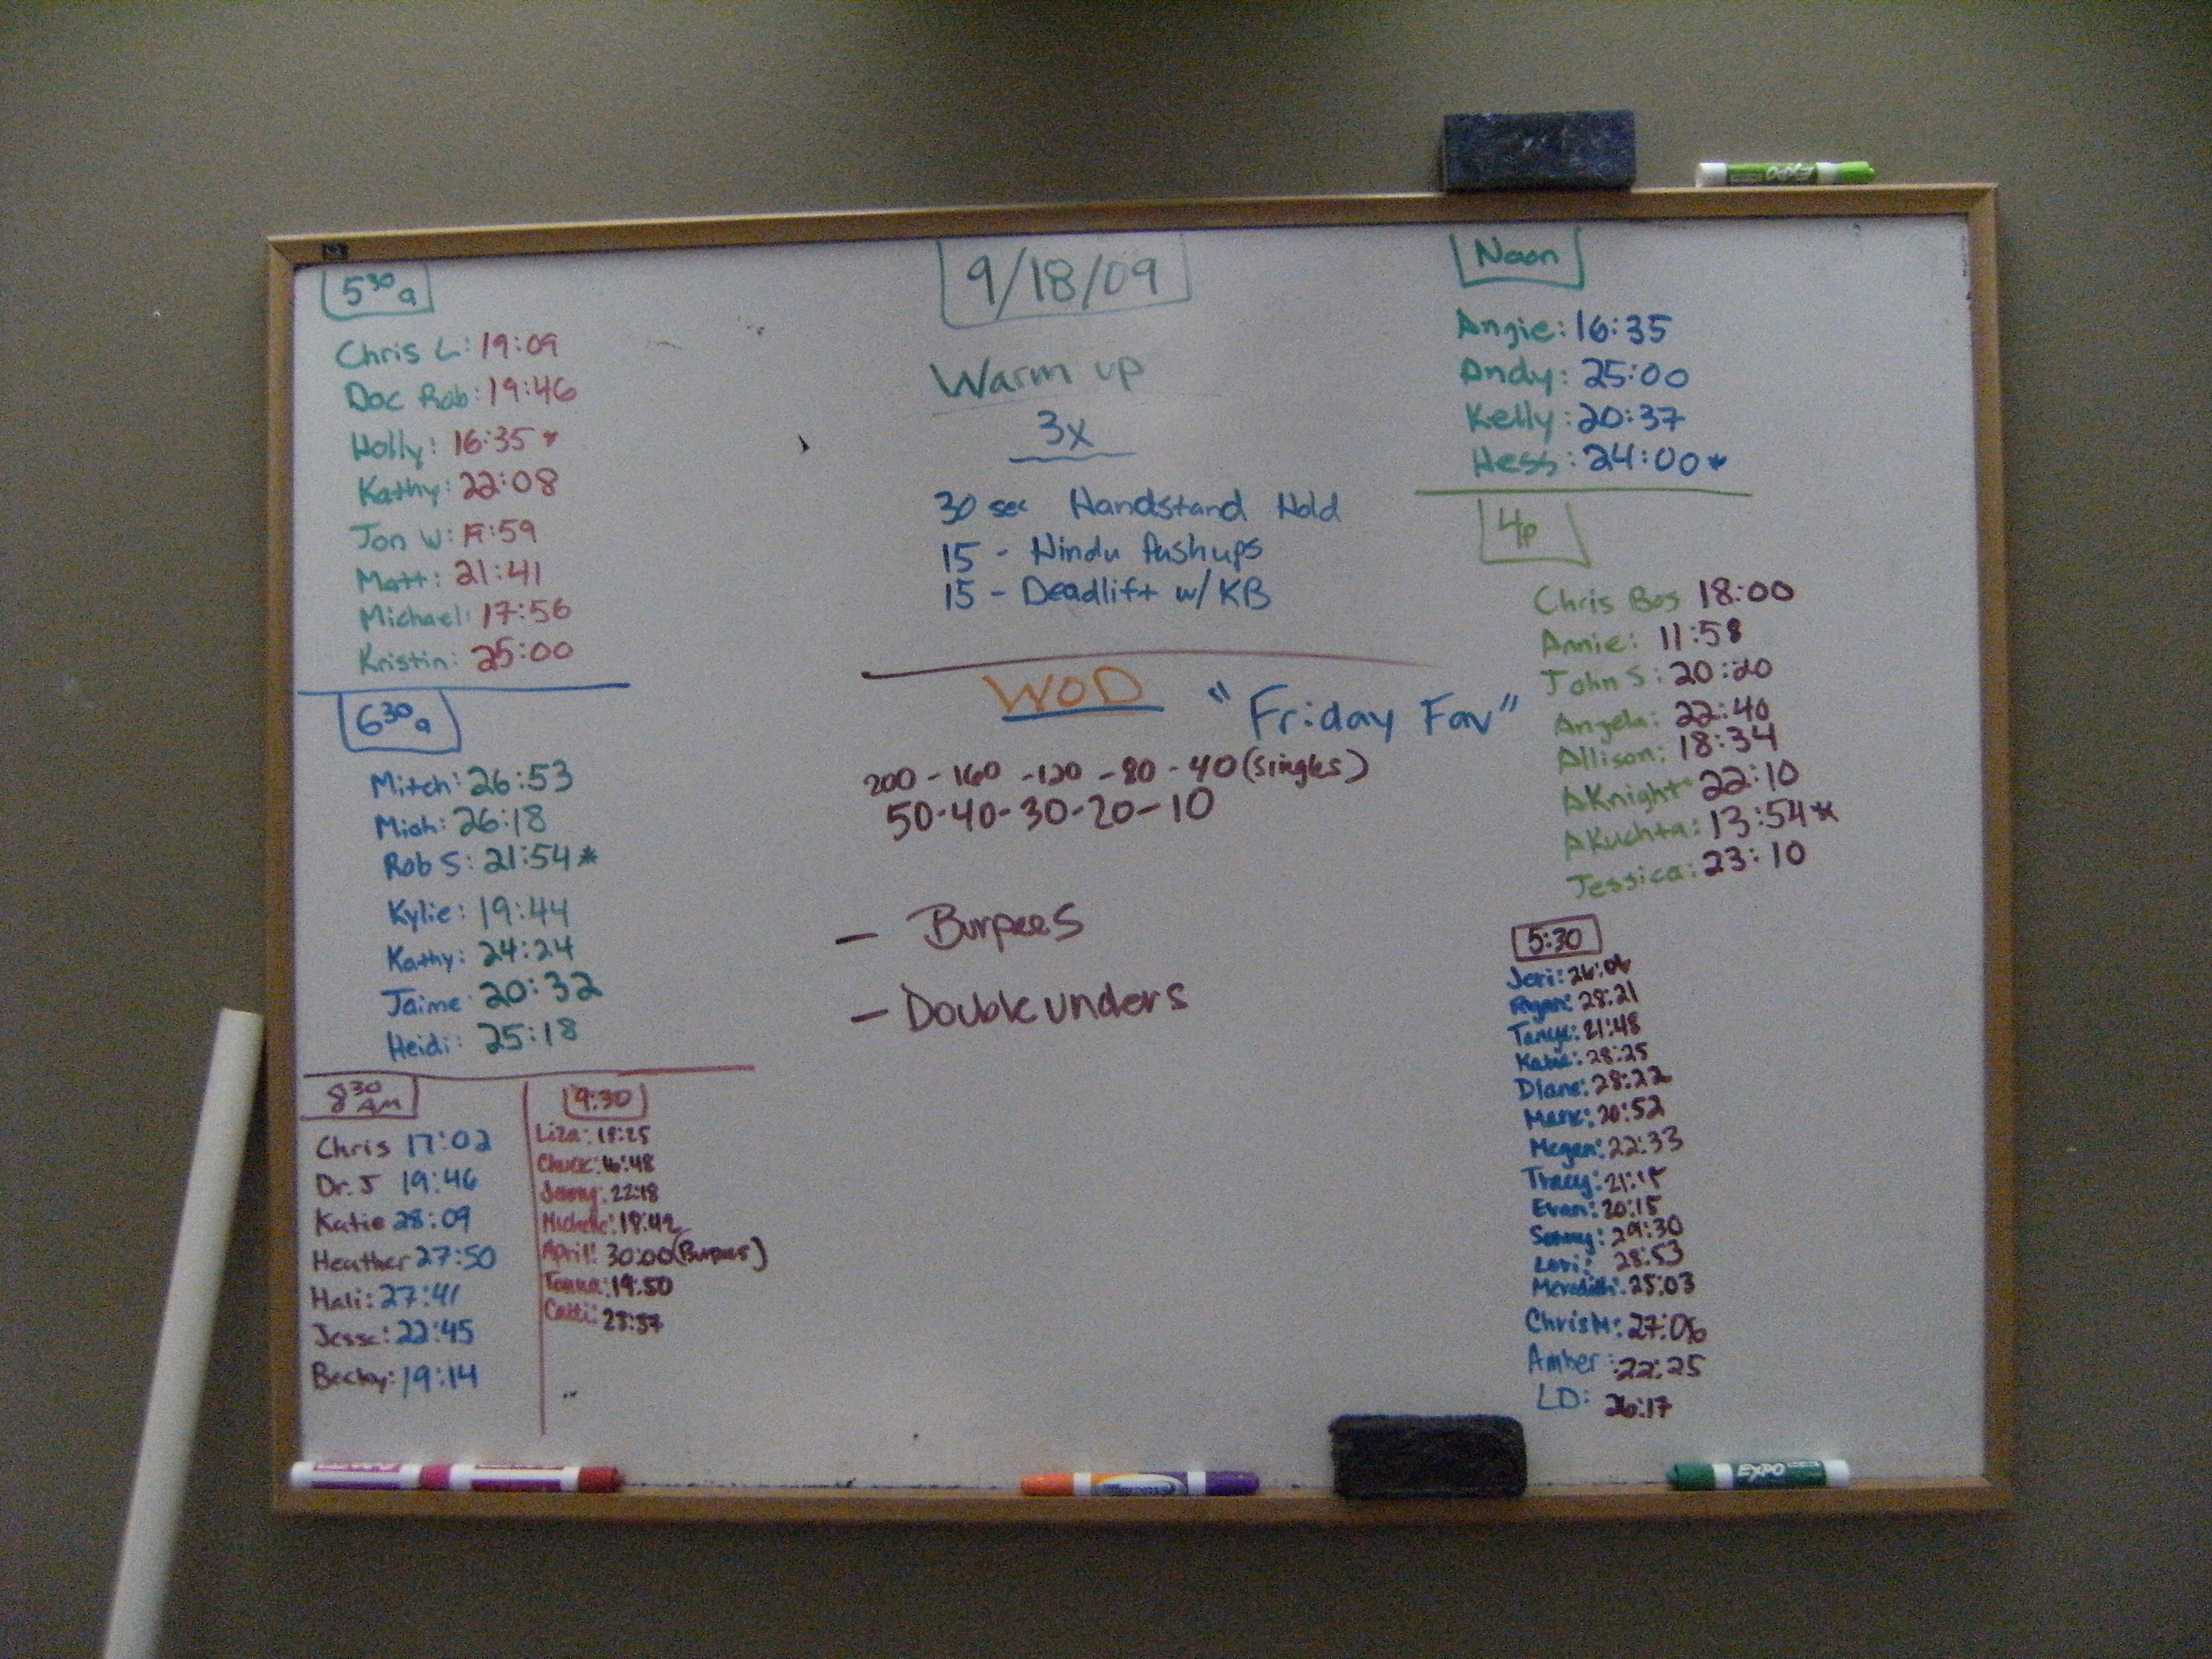 5 30 a
Chris L: 19:09
Doc Rob: 19:46
Holly: 16:35 *
Kathy: 22:08
Jon W: 19:59
Matt: 21:41
Michael: 17:56
Kristin: 25:00
6 30 a
Mitch: 26:53
26:18
Rob S: 21:54 *
Kylie: 19:44
Kathy: 24:24
Jaime 20:32
Heidi: 25:18
8 30 AM
Chris 17:02
Dr. J 19:46
Katie 28:09
Heather 27:50
Hali: 27:41
Jesse: 22:45
Becky: 19:14
9:30
Liza: 18:25
Chuck: 16:48
Jenny: 22:18
Michelle: 18:42
April: 30:00 (Burpees)
19:50
28:57
9/18/09
Warm up
3x
30 sec Handstand Hold
15 - Hindu Pushups
15 - Deadlift w/ KB
WOD "Friday Fav"
200 - 160 - 120 - 80 - 40 (singles)
50-40-30-20-10
- Burpees
- Double unders
Noon
Angie: 16:35
Andy: 25:00
Kelly: 20:37
Hess: 24:00 *
4p
Chris Bos 18:00
Annie: 11:58
John S: 20:20
Angela: 22:40
Allison: 18:34
AKnight 22:10
AKuchta: 13:54 *
Jessica: 23:10
5:30
Jeri: 26:06
Ryan: 28:21
Tanya: 21:48
Katie: 28:25
Diane: 28:22
Mark: 20:52
Megan: 22:33
Tracy:
Evan: 20:15
29:30
Lori: 28:53
Meredith: 25:03
Chris M: 27:06
Amber: 22:25
LD: 26:17
EXPO